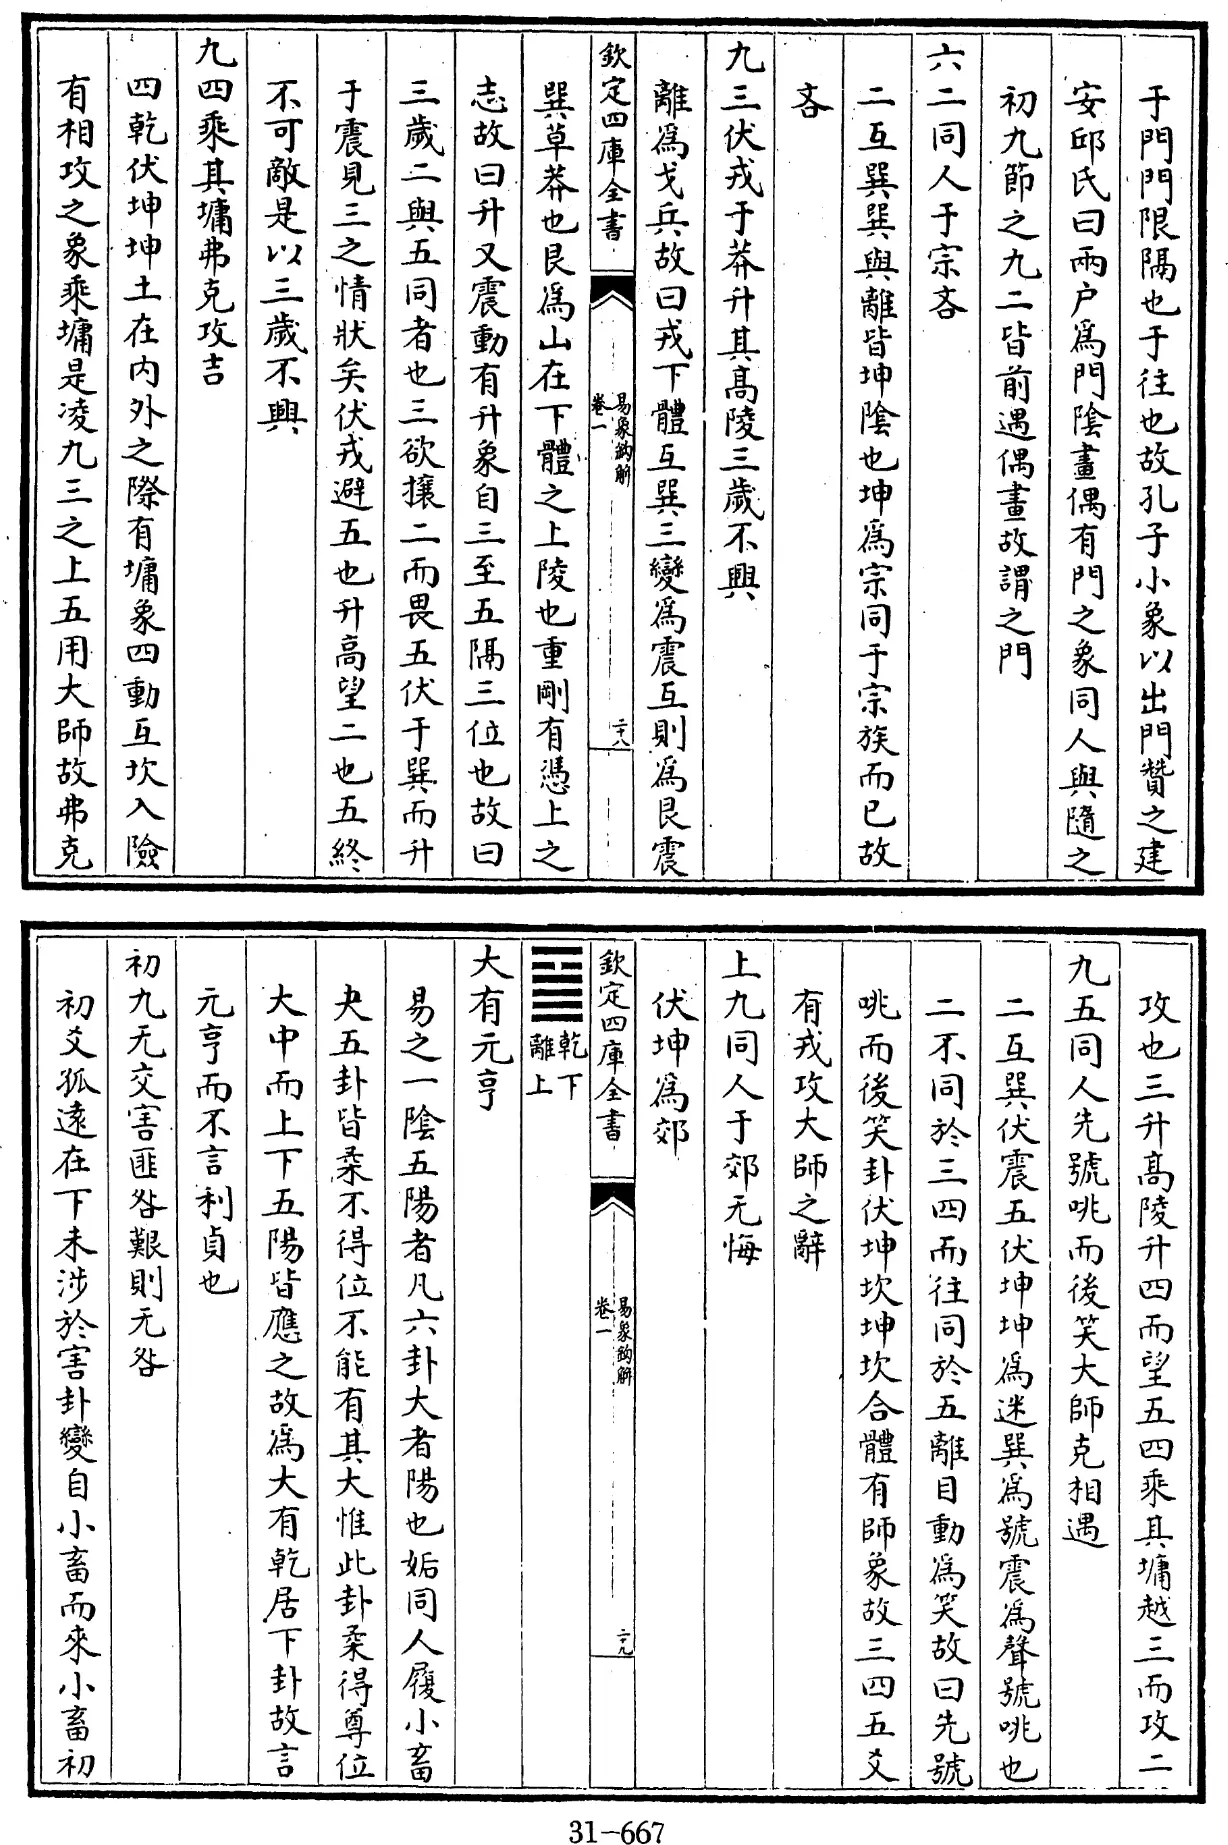 于門門限隔也于往也故孔子小象以出門贊之建
安邱氏曰兩户爲門陰畫偶有門之象同人與隨之
初九節之九二皆前遇偶畫故謂之門
六二同人于宗吝
二互巽巽與離皆坤陰也坤爲宗同于宗族而已故
吝
九三伏戎于莽升其髙陵三歲不興
離爲戈兵故曰戎下體互巽三變爲震互則爲艮震
欽定四庫全書
易象鈎解
卷一
二十八
巽草莽也艮爲山在下體之上陵也重剛有憑上之
志故曰升又震動有升象自三至五隔三位也故曰
三歲二與五同者也三欲攘二而畏五伏于巽而升
于震見三之情狀矣伏戎避五也升高望二也五終
不可敵是以三歲不興
九四乘其墉弗克攻吉
四乾伏坤坤土在内外之際有墉象四動互坎入險
有相攻之象乘墉是凌九三之上五用大師故弗克
攻也三升髙陵升四而望五四乘其墉越三而攻二
九五同人先號咷而後笑大師克相遇
二互巽伏震五伏坤坤爲迷巽爲號震爲聲號咷也
二不同於三四而往同於五離目動爲笑故曰先號
咷而後笑卦伏坤坎坤坎合體有師象故三四五爻
有戎攻大師之辭
上九同人于郊无悔
伏坤爲郊
欽定四庫全書
易象鈎解
卷一
二十九
乾下
離上
大有元亨
易之一陰五陽者凡六卦大者陽也姤同人履小畜
夬五卦皆柔不得位不能有其大惟此卦柔得尊位
大中而上下五陽皆應之故爲大有乾居下卦故言
元亨而不言利貞也
初九无交害匪咎艱則无咎
初爻孤遠在下未涉於害卦變自小畜而來小畜初
31-667